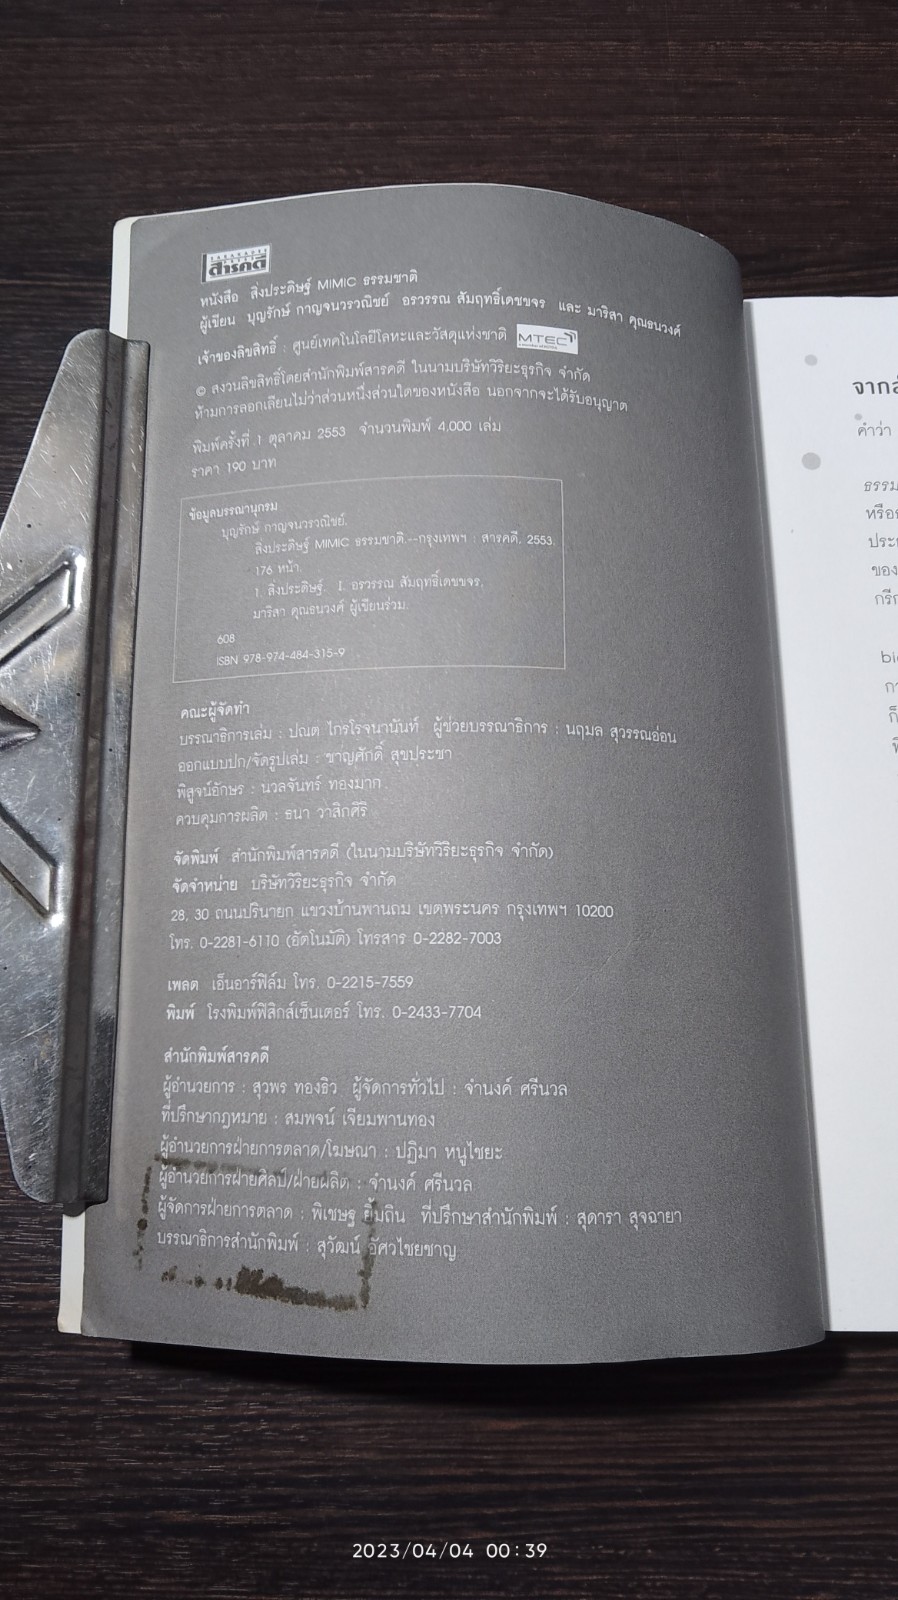 สารคดี
หนังสือ สิ่งประดิษฐ์ MIMIC ธรรมชาติ
ผู้เขียน บุญรักษ์ กาญจนวรวณิชย์ อรวรรณ สัมฤทธิ์เดชขจร และ มาริสา คุณธนวงศ์
เจ้าของลิขสิทธิ์ : ศูนย์เทคโนโลยีโลหะและวัสดุแห่งชาติ MTEC
© สงวนลิขสิทธิ์โดยสำนักพิมพ์สารคดี ในนามบริษัทวิริยะธุรกิจ จำกัด
ห้ามการลอกเลียนไม่ว่าส่วนหนึ่งส่วนใดของหนังสือ นอกจากจะได้รับอนุญาต
พิมพ์ครั้งที่ 1 ตุลาคม 2553 จำนวนพิมพ์ 4,000 เล่ม
ราคา 190 บาท
ข้อมูลบรรณานุกรม
บุญรักษ์ กาญจนวรวณิชย์.
สิ่งประดิษฐ์ MIMIC ธรรมชาติ.--กรุงเทพฯ : สารคดี, 2553.
176 หน้า.
1. สิ่งประดิษฐ์. I. อรวรรณ สัมฤทธิ์เดชขจร,
มาริสา คุณธนวงศ์ ผู้เขียนร่วม.
608
ISBN 978-974-484-315-9
คณะผู้จัดทำ
บรรณาธิการเล่ม : ปณต ไกรโรจนานันท์ ผู้ช่วยบรรณาธิการ : นฤมล สุวรรณอ่อน
ออกแบบปก/จัดรูปเล่ม : ชาญศักดิ์ สุขประชา
พิสูจน์อักษร : นวลจันทร์ ทองมาก
ควบคุมการผลิต : ธนา วาสิกศิริ
จัดพิมพ์ สำนักพิมพ์สารคดี (ในนามบริษัทวิริยะธุรกิจ จำกัด)
จัดจำหน่าย บริษัทวิริยะธุรกิจ จำกัด
28, 30 ถนนปรินายก แขวงบ้านพานถม เขตพระนคร กรุงเทพฯ 10200
โทร. 0-2281-6110 (อัตโนมัติ) โทรสาร 0-2282-7003
เพลต เอ็นอาร์ฟิล์ม โทร. 0-2215-7559
พิมพ์ โรงพิมพ์ฟิสิกส์เซ็นเตอร์ โทร. 0-2433-7704
สำนักพิมพ์สารคดี
ผู้อำนวยการ : สุวพร ทองธิว ผู้จัดการทั่วไป : จำนงค์ ศรีนวล
ที่ปรึกษากฎหมาย : สมพจน์ เจียมพานทอง
ผู้อำนวยการฝ่ายการตลาด/โฆษณา : ปฏิมา หนูไชยะ
ผู้อำนวยการฝ่ายศิลป์/ฝ่ายผลิต : จำนงค์ ศรีนวล
ผู้จัดการฝ่ายการตลาด : พิเชษฐ ยิ้มถิน ที่ปรึกษาสำนักพิมพ์ : สุดารา สุจฉายา
บรรณาธิการสำนักพิมพ์ : สุวัฒน์ อัศวไชยชาญ
คำว่า
หรือ
ของ
2023/04/04 00:39